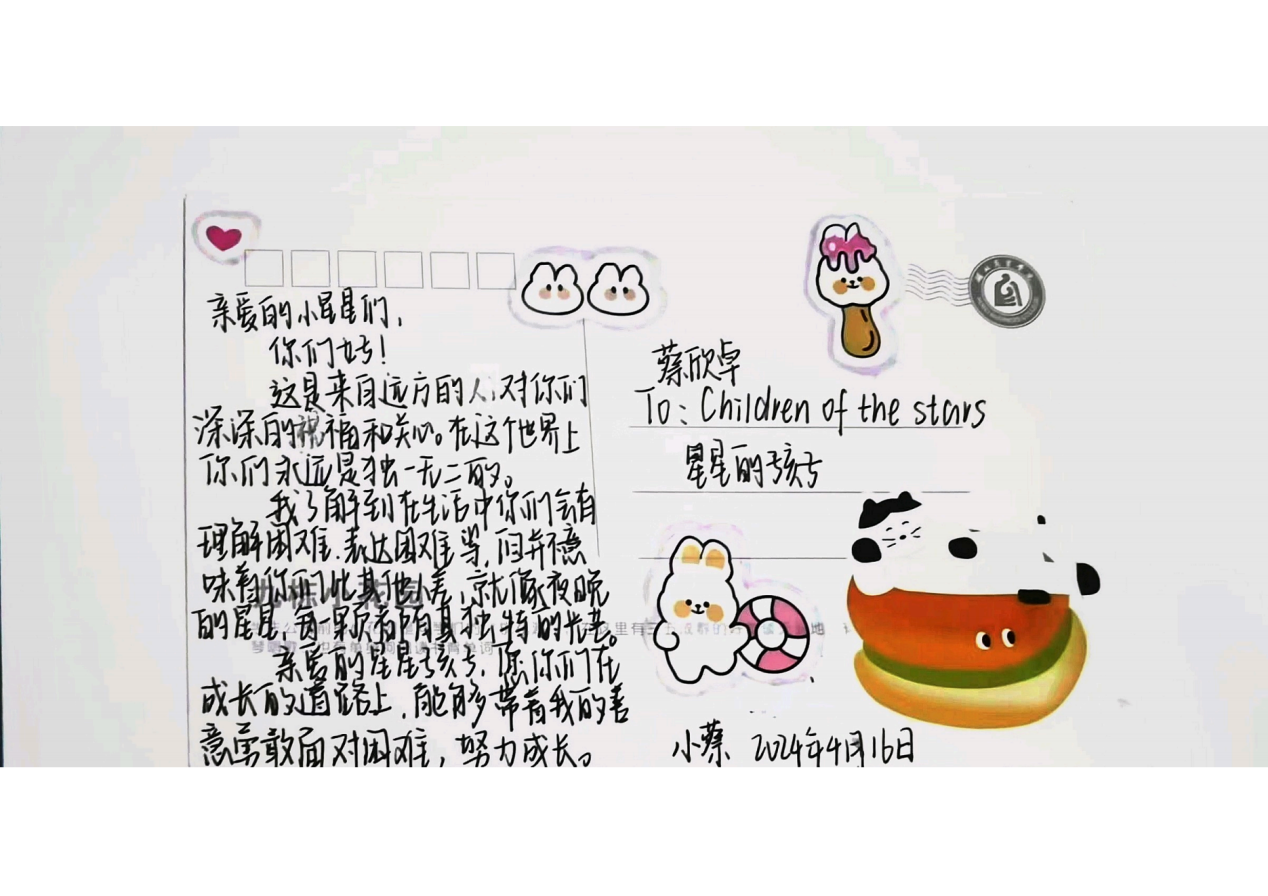 亲爱的小星星们，
你们好！
这是来自远方的人，对你们
深深的祝福和关心。在这个世界上
你们永远是独一无二的。
我了解到在生活中你们会有
理解困难，表达困难等，但并不意
味着你们比其他人差，就像夜晚
的星星，每一颗都有独特的光芒。
亲爱的星星孩子，愿你们在
成长的道路上，能够带着我的善
意勇敢面对困难，努力成长。
蔡欣卓
To: Children of the stars
星星的孩子
小蔡 2024年4月16日